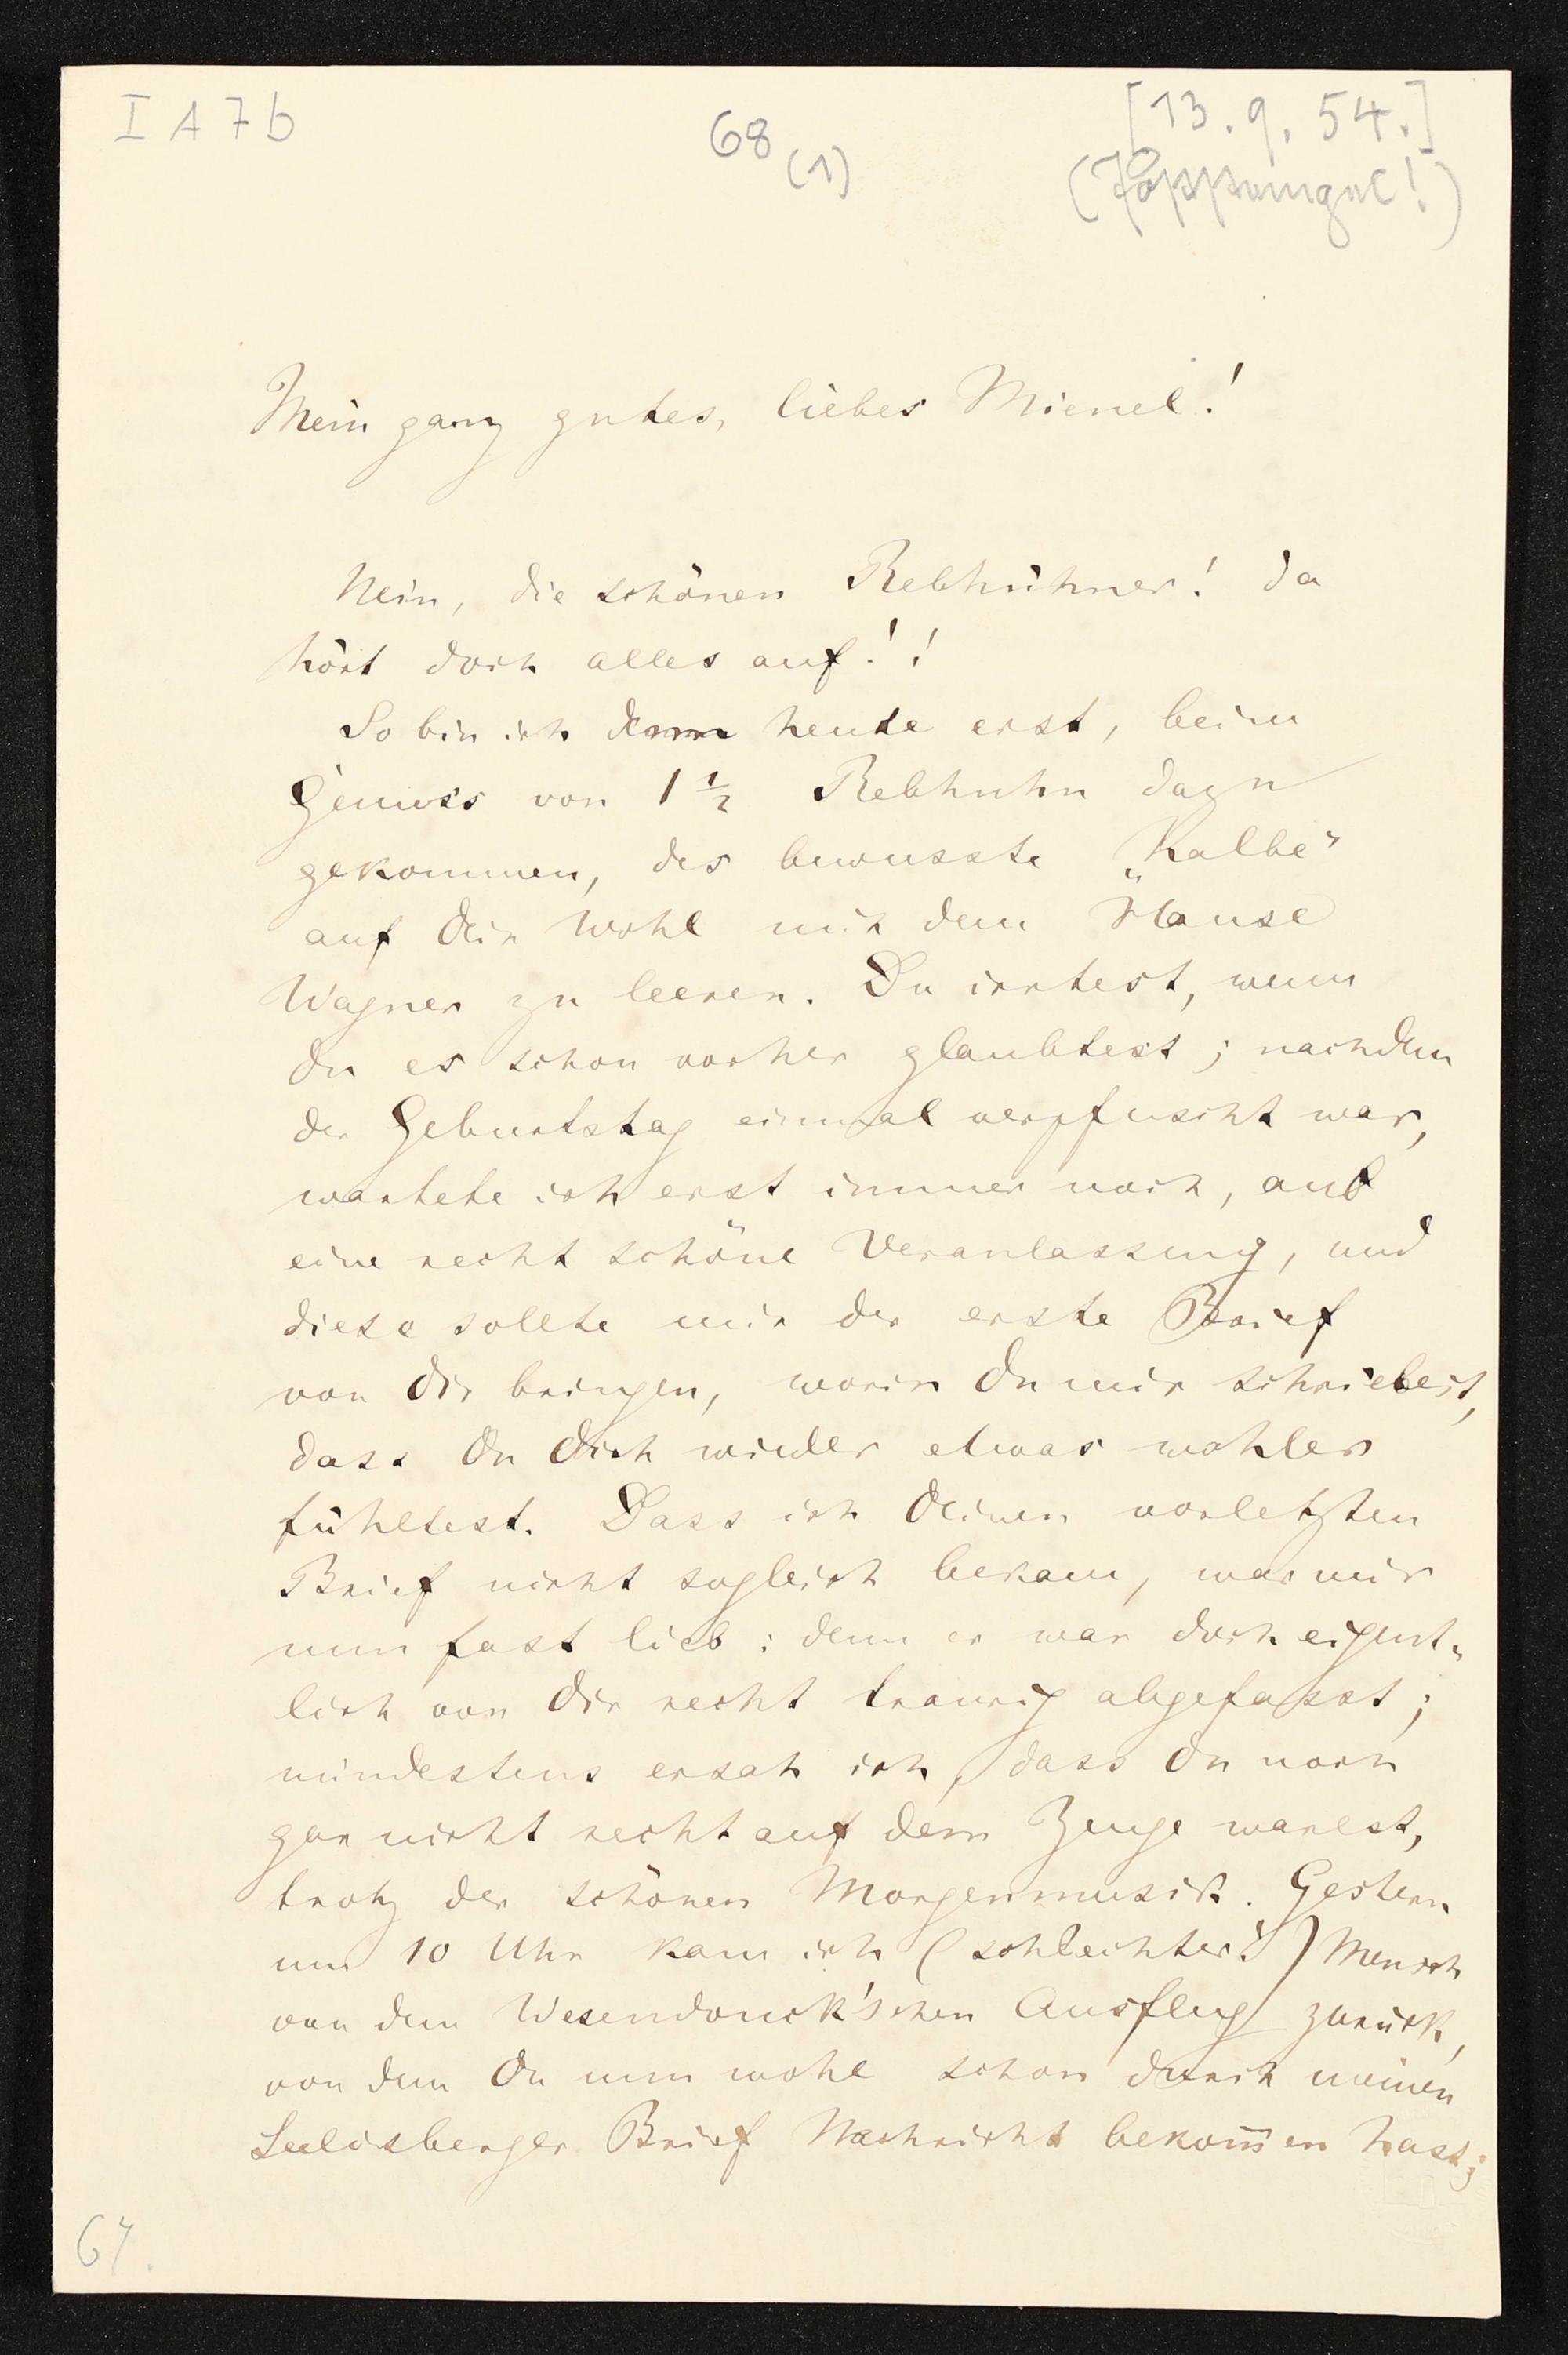 I A 7 b
68 (1)
[13. 9. 54.]
Mein ganz gutes, liebes Mienel!
Nein, die schönen Rebhühner! da
hört doch alles auf!!
So bin ich denn heute erst, beim
Genuss von 1 1/2 Rebhuhn dazu
gekommen, das bewusste „Kalbe"
auf Dein Wohl mit dem Hause
Wagner zu leeren. Du irrtest, wenn
du es schon vorher glaubtest; nachdem
der Geburtstag einmal verpfuscht war,
wartete ich erst immer noch, auf
eine recht schöne Veranlassung, und
diese sollte mir der erste Brief
von Dir bringen, worin Du mir schriebest,
dass Du Dich wieder etwas wohler
fühltest. Dass ich Deinen vorletzten
Brief nicht sogleich bekam, war mir
nun fast lieb: denn er war doch eigent-
lich von Dir recht traurig abgefasst;
mindestens ersah ich, dass Du noch
gar nicht recht auf dem Zeuge warest,
trotz der schönen Morgenmusik. Gestern
um 10 Uhr kam ich (schlechter!) Mensch
von dem Wesendonck'schen Ausflug zurück,
von dem Du nun wohl schon durch meinen
Seelisberger Brief Nachricht bekom̅en hast;
67.